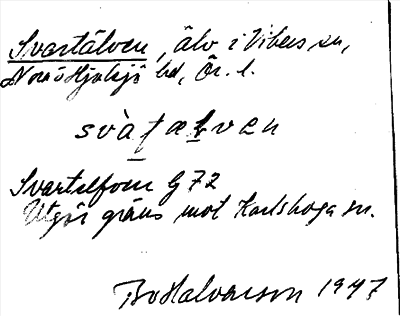 Svartälven, älv i Vikers sn,
Nora o Hjulsjö hd, Ör. l.
svàṭæḷven
Svartelfven G 72
Utgör gräns mot Karlskoga sn.
Bo Halvarson 1947